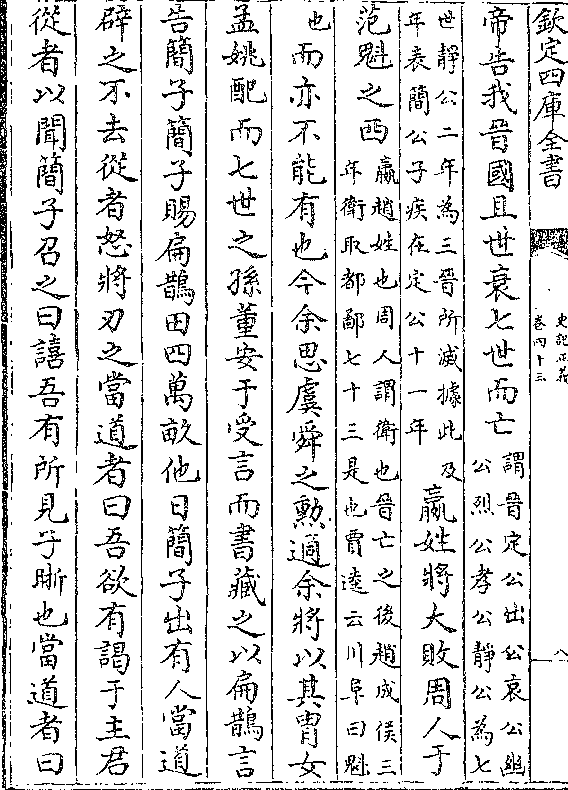 欽定四庫全書
史記正義
卷四十三
八
帝告我晉國且世衰七世而亡謂晉定公出公哀公幽公烈公孝公靜公為七
世靜公二年為三晉所滅據此及年表簡公子疾在定公十一年嬴姓將大敗周人于
范魁之西嬴趙姓也周人謂衛也晉亡之後趙成侯三年衛取都鄙七十三是也賈逵云川阜曰魁
也而亦不能有也今余思虞舜之勲適余將以其胄女
孟姚配而七世之孫董安于受言而書藏之以扁鵲言
告簡子簡子賜扁鵲田四萬畝他日簡子出有人當道
辟之不去從者怒將刃之當道者曰吾欲有謁于主君
從者以聞簡子召之曰譆吾有所見子晣也當道者曰